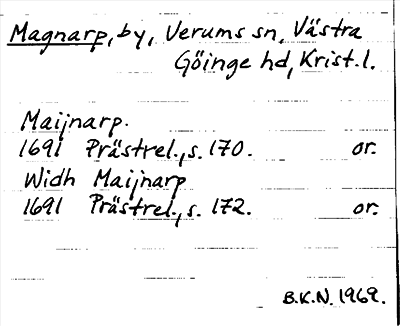 Magnarp, by, Verums sn, Västra
Göinge hd, Krist. l.
Maijnarp.
1691 Prästrel., s. 170. or.
Widh Maijnarp
1691 Prästrel., s. 172. or.
B.K.N. 1969.